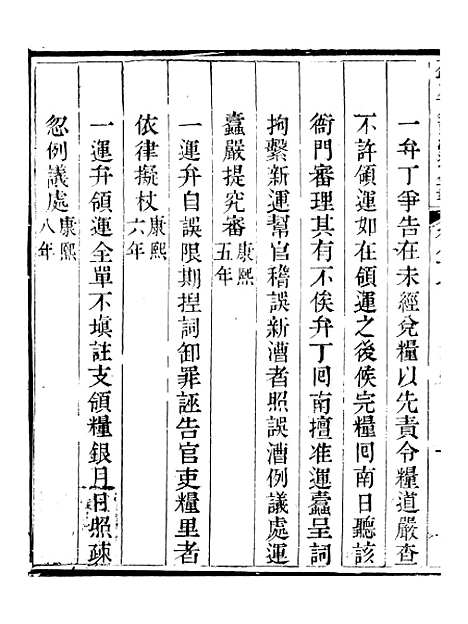 一弁丁爭告在未經兌糧以先責令糧道嚴查
不許領運如在領運之後候完糧囘南日聽該
衙門審理其有不俟弁丁囘南擅准運蠹呈詞
拘繫新運幫官稽誤新漕者照誤漕例議處運
蠹嚴提究審康熙五年
一運弁自誤限期揑詞卸罪誣告官吏糧里者
依律擬杖康熙六年
一運弁領運全單不塡註支領糧銀月日照疎
忽例議處康熙八年